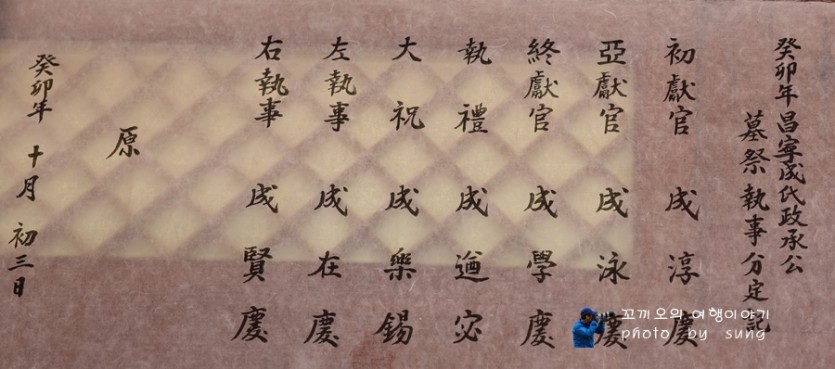 癸卯年昌寧成氏政承公
墓祭執事分定記
初獻官 成淳慶
亞獻官 成泳慶
終獻官 成學慶
執禮 成逎宓
大祝 成樂錫
左執事 成在慶
右執事 成賢慶
原
癸卯年 十月 初三日
꼬끼오의 여행이야기
photo by sung